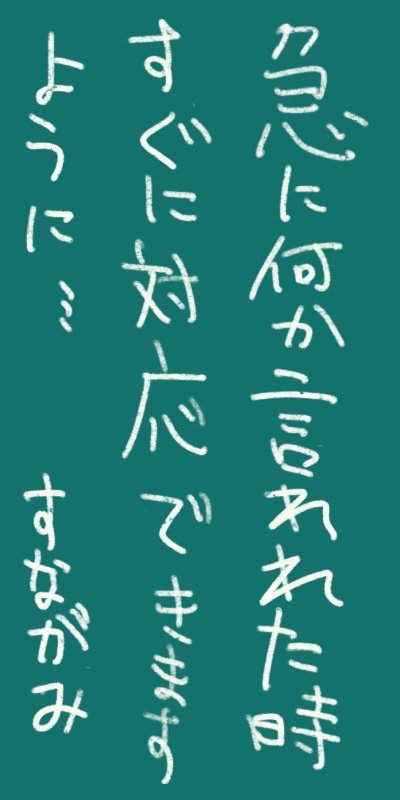 急に何か言われた時
すぐに対応できます
ように…
すながみ